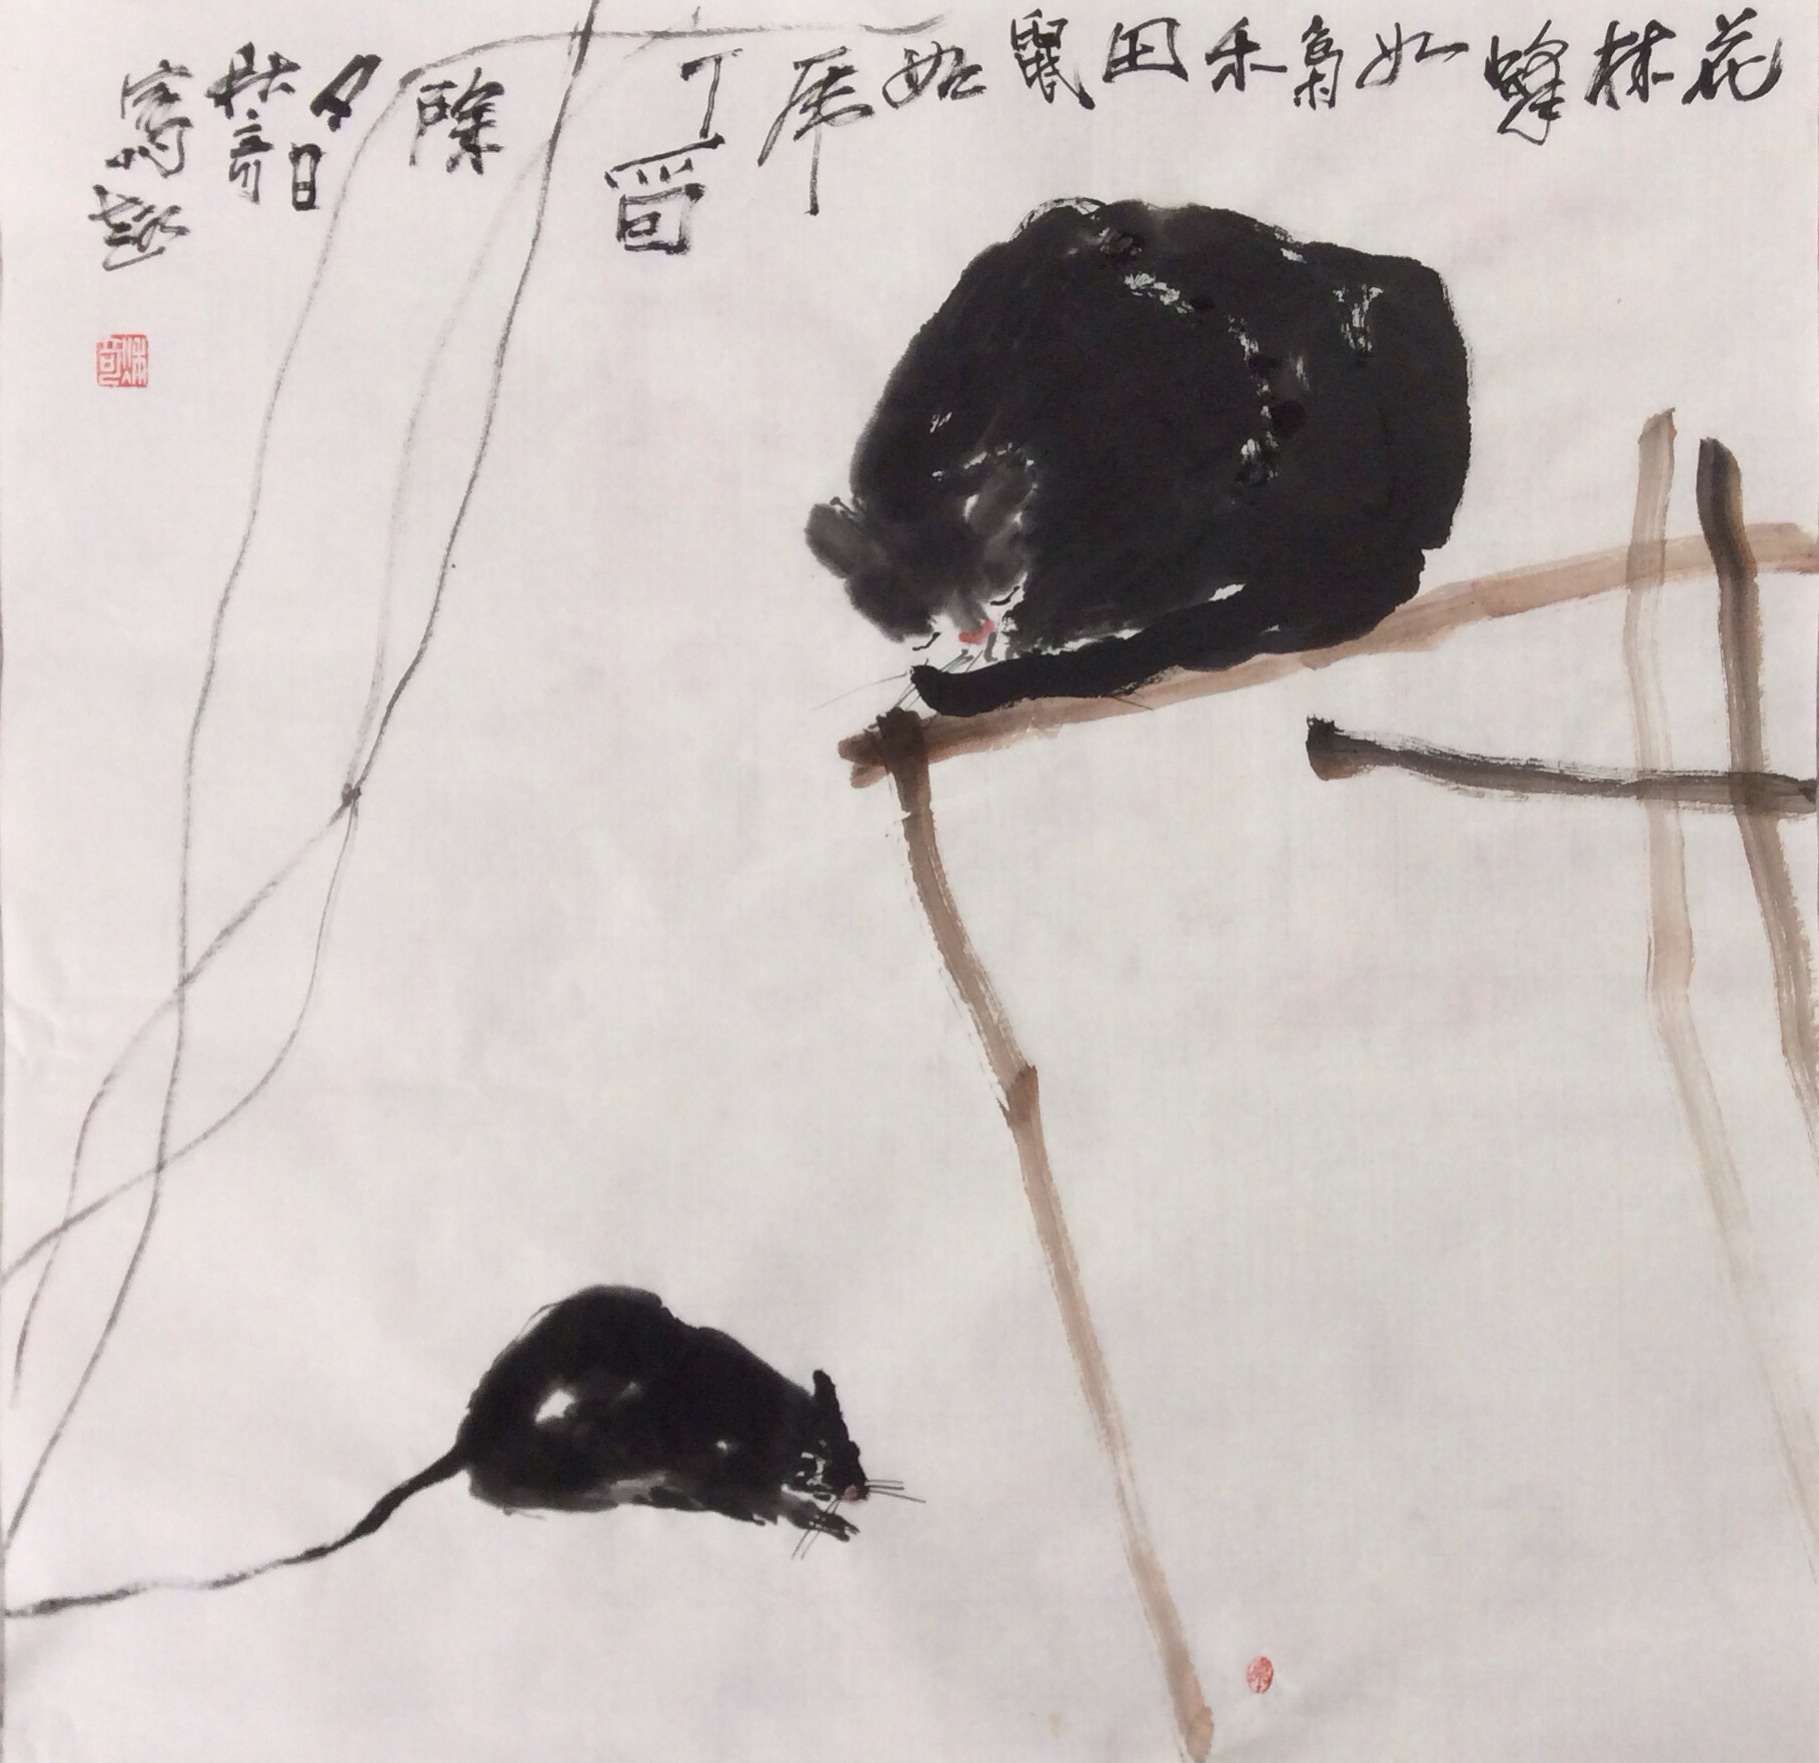 花林蜂如梟禾田鼠如虎
丁酉
除
夕日
寫